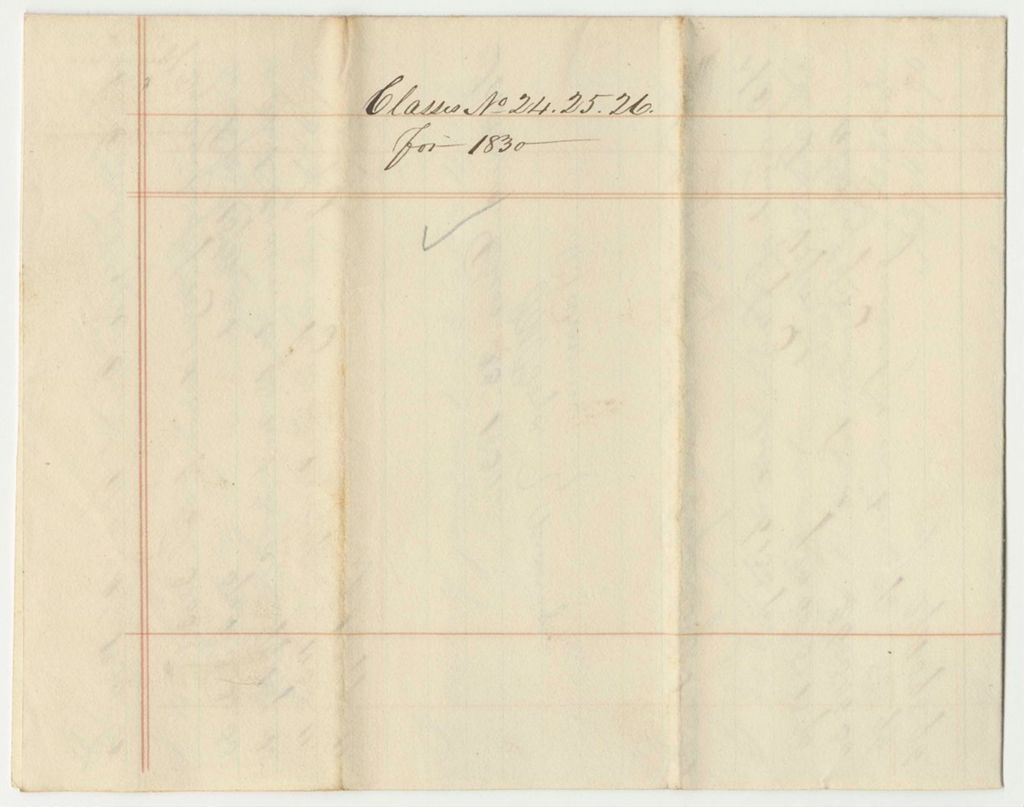 Classes No 24. 25. 26.
for 1830